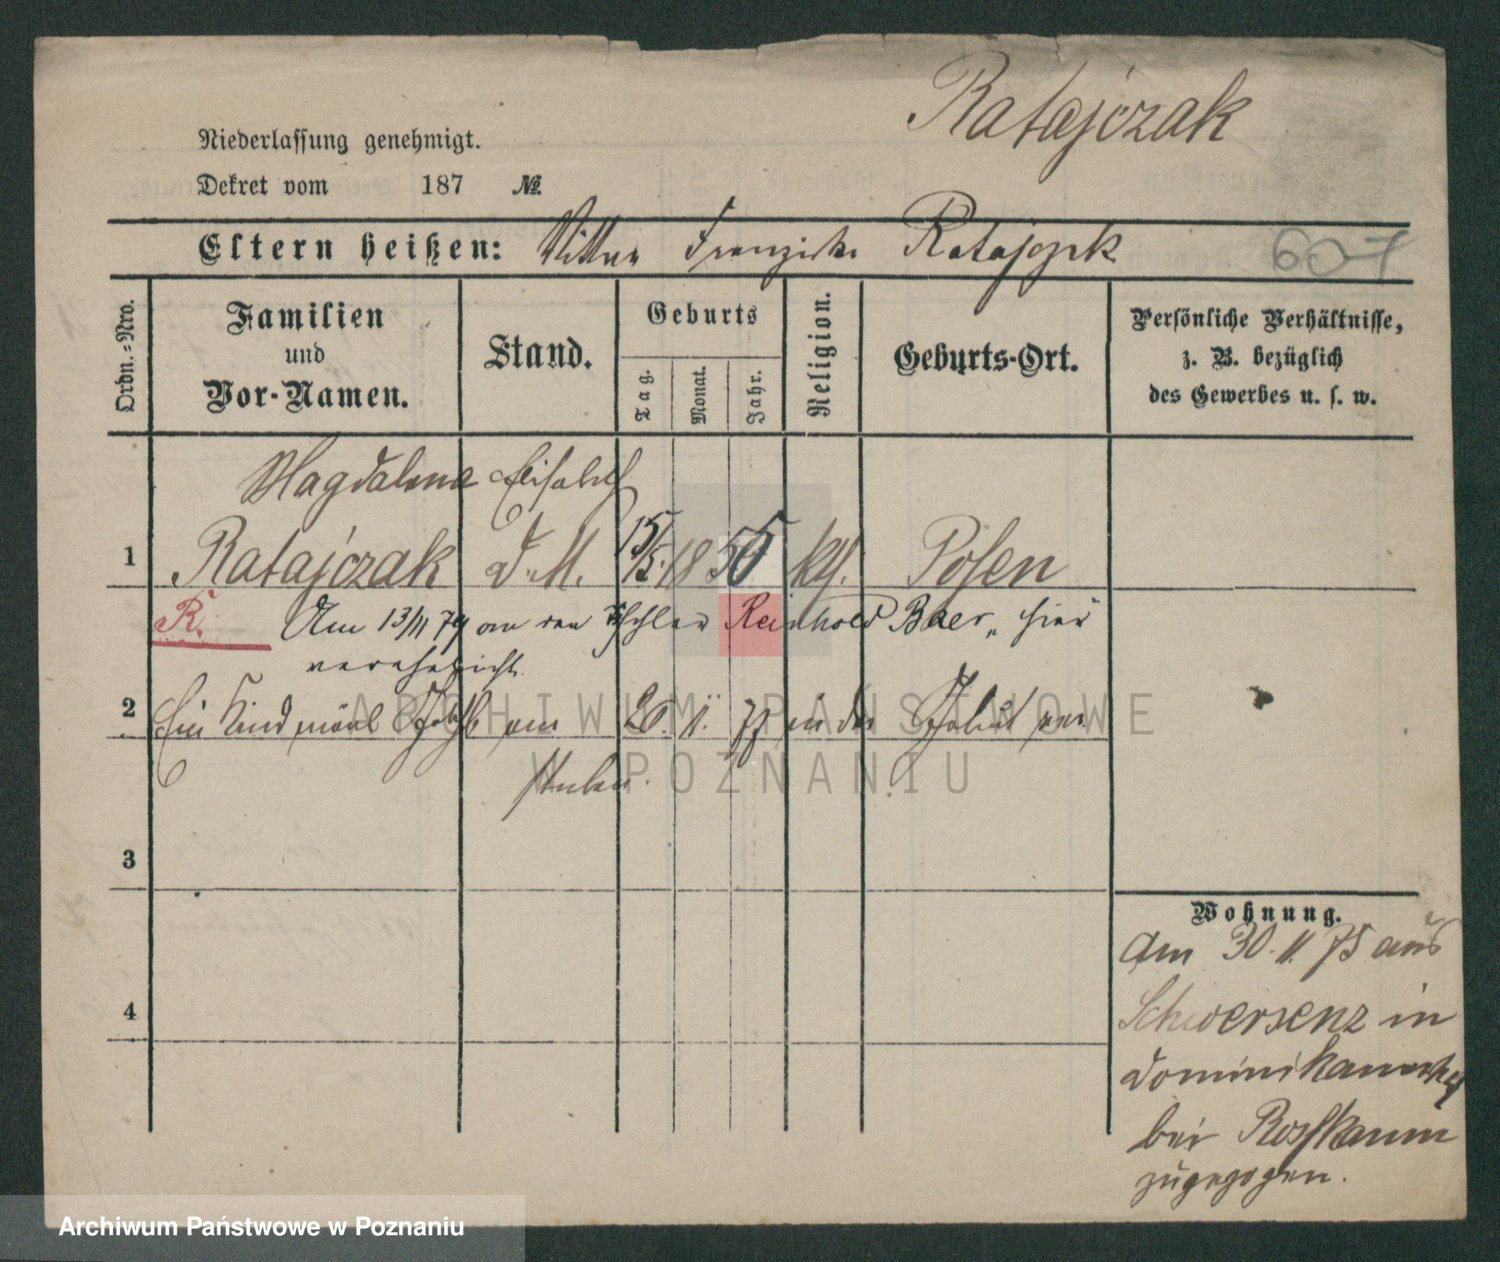 Ratajczak
Niederlassung genehmigt.
Dekret vom 187 №
Eltern heißen: Mutter Franziska Ratajczak
607
Ordn.-Nro.
Familien
und
Vor-Namen.
Stand.
Geburts
Tag.
Monat.
Jahr.
Religion.
Geburts-Ort.
Persönliche Verhältnisse,
z. B. bezüglich
des Gewerbes u. s. w.
Magdalena Elisabeth
1 Ratajczak d. M. 15/5. 1850 kth. Posen
R. Am 13/11 79 an den Tischler Reinhold Baer, hier
verehelicht
2 Ein Kind männl. am 20. 11. 77 in der Geburt ver
storben.
3
4
Wohnung.
Am 30. 11. 75 aus
Schwersenz in
bei Roßkamm
zugezogen.
ARCHIWUM PAŃSTWOWE
W POZNANIU
Archiwum Państwowe w Poznaniu